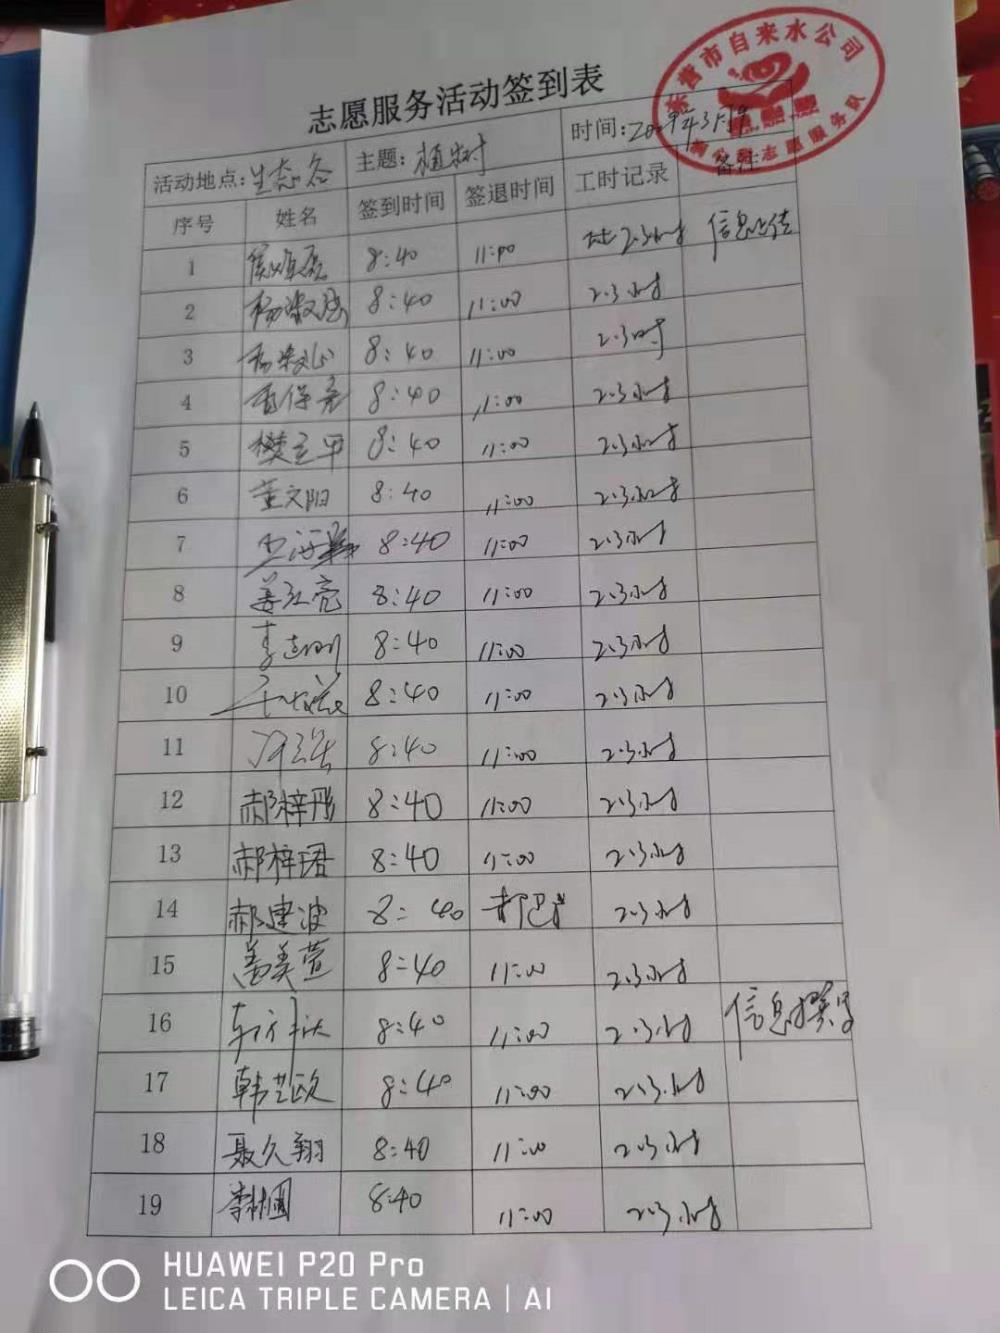 东营市自来水公司
志愿服务队
志愿服务活动签到表
活动地点:生态谷 主题:植树 时间:
序号 姓名 签到时间 签退时间 工时记录 备注
1 8:40 11:00 2.3小时 信息上传
2 8:40 11:00 2.3小时
3 8:40 11:00 2.3时
4 8:40 11:00 2.3小时
5 樊立平 8:40 11:00 2.3小时
6 董文阳 8:40 11:00 2.3小时
7 8:40 11:00 2.3小时
8 姜红亮 8:40 11:00 2.3小时
9 8:40 11:00 2.3小时
10 8:40 11:00 2.3小时
11 8:40 11:00 2.3小时
12 郝梓彤 8:40 11:00 2.3小时
13 郝梓珺 8:40 11:00 2.3小时
14 郝建波 8:40 2.3小时
15 盖美萱 8:40 11:00 2.3小时
16 8:40 11:00 2.3小时 信息撰写
17 韩艺欧 8:40 11:00 2.3小时
18 聂久翔 8:40 11:00 2.3小时
19 8:40 11:00 2.3小时
HUAWEI P20 Pro
LEICA TRIPLE CAMERA | AI